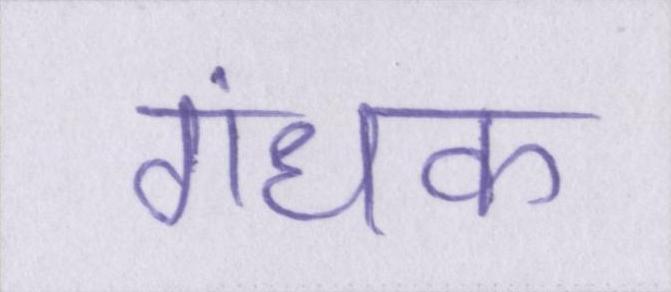 गंधक